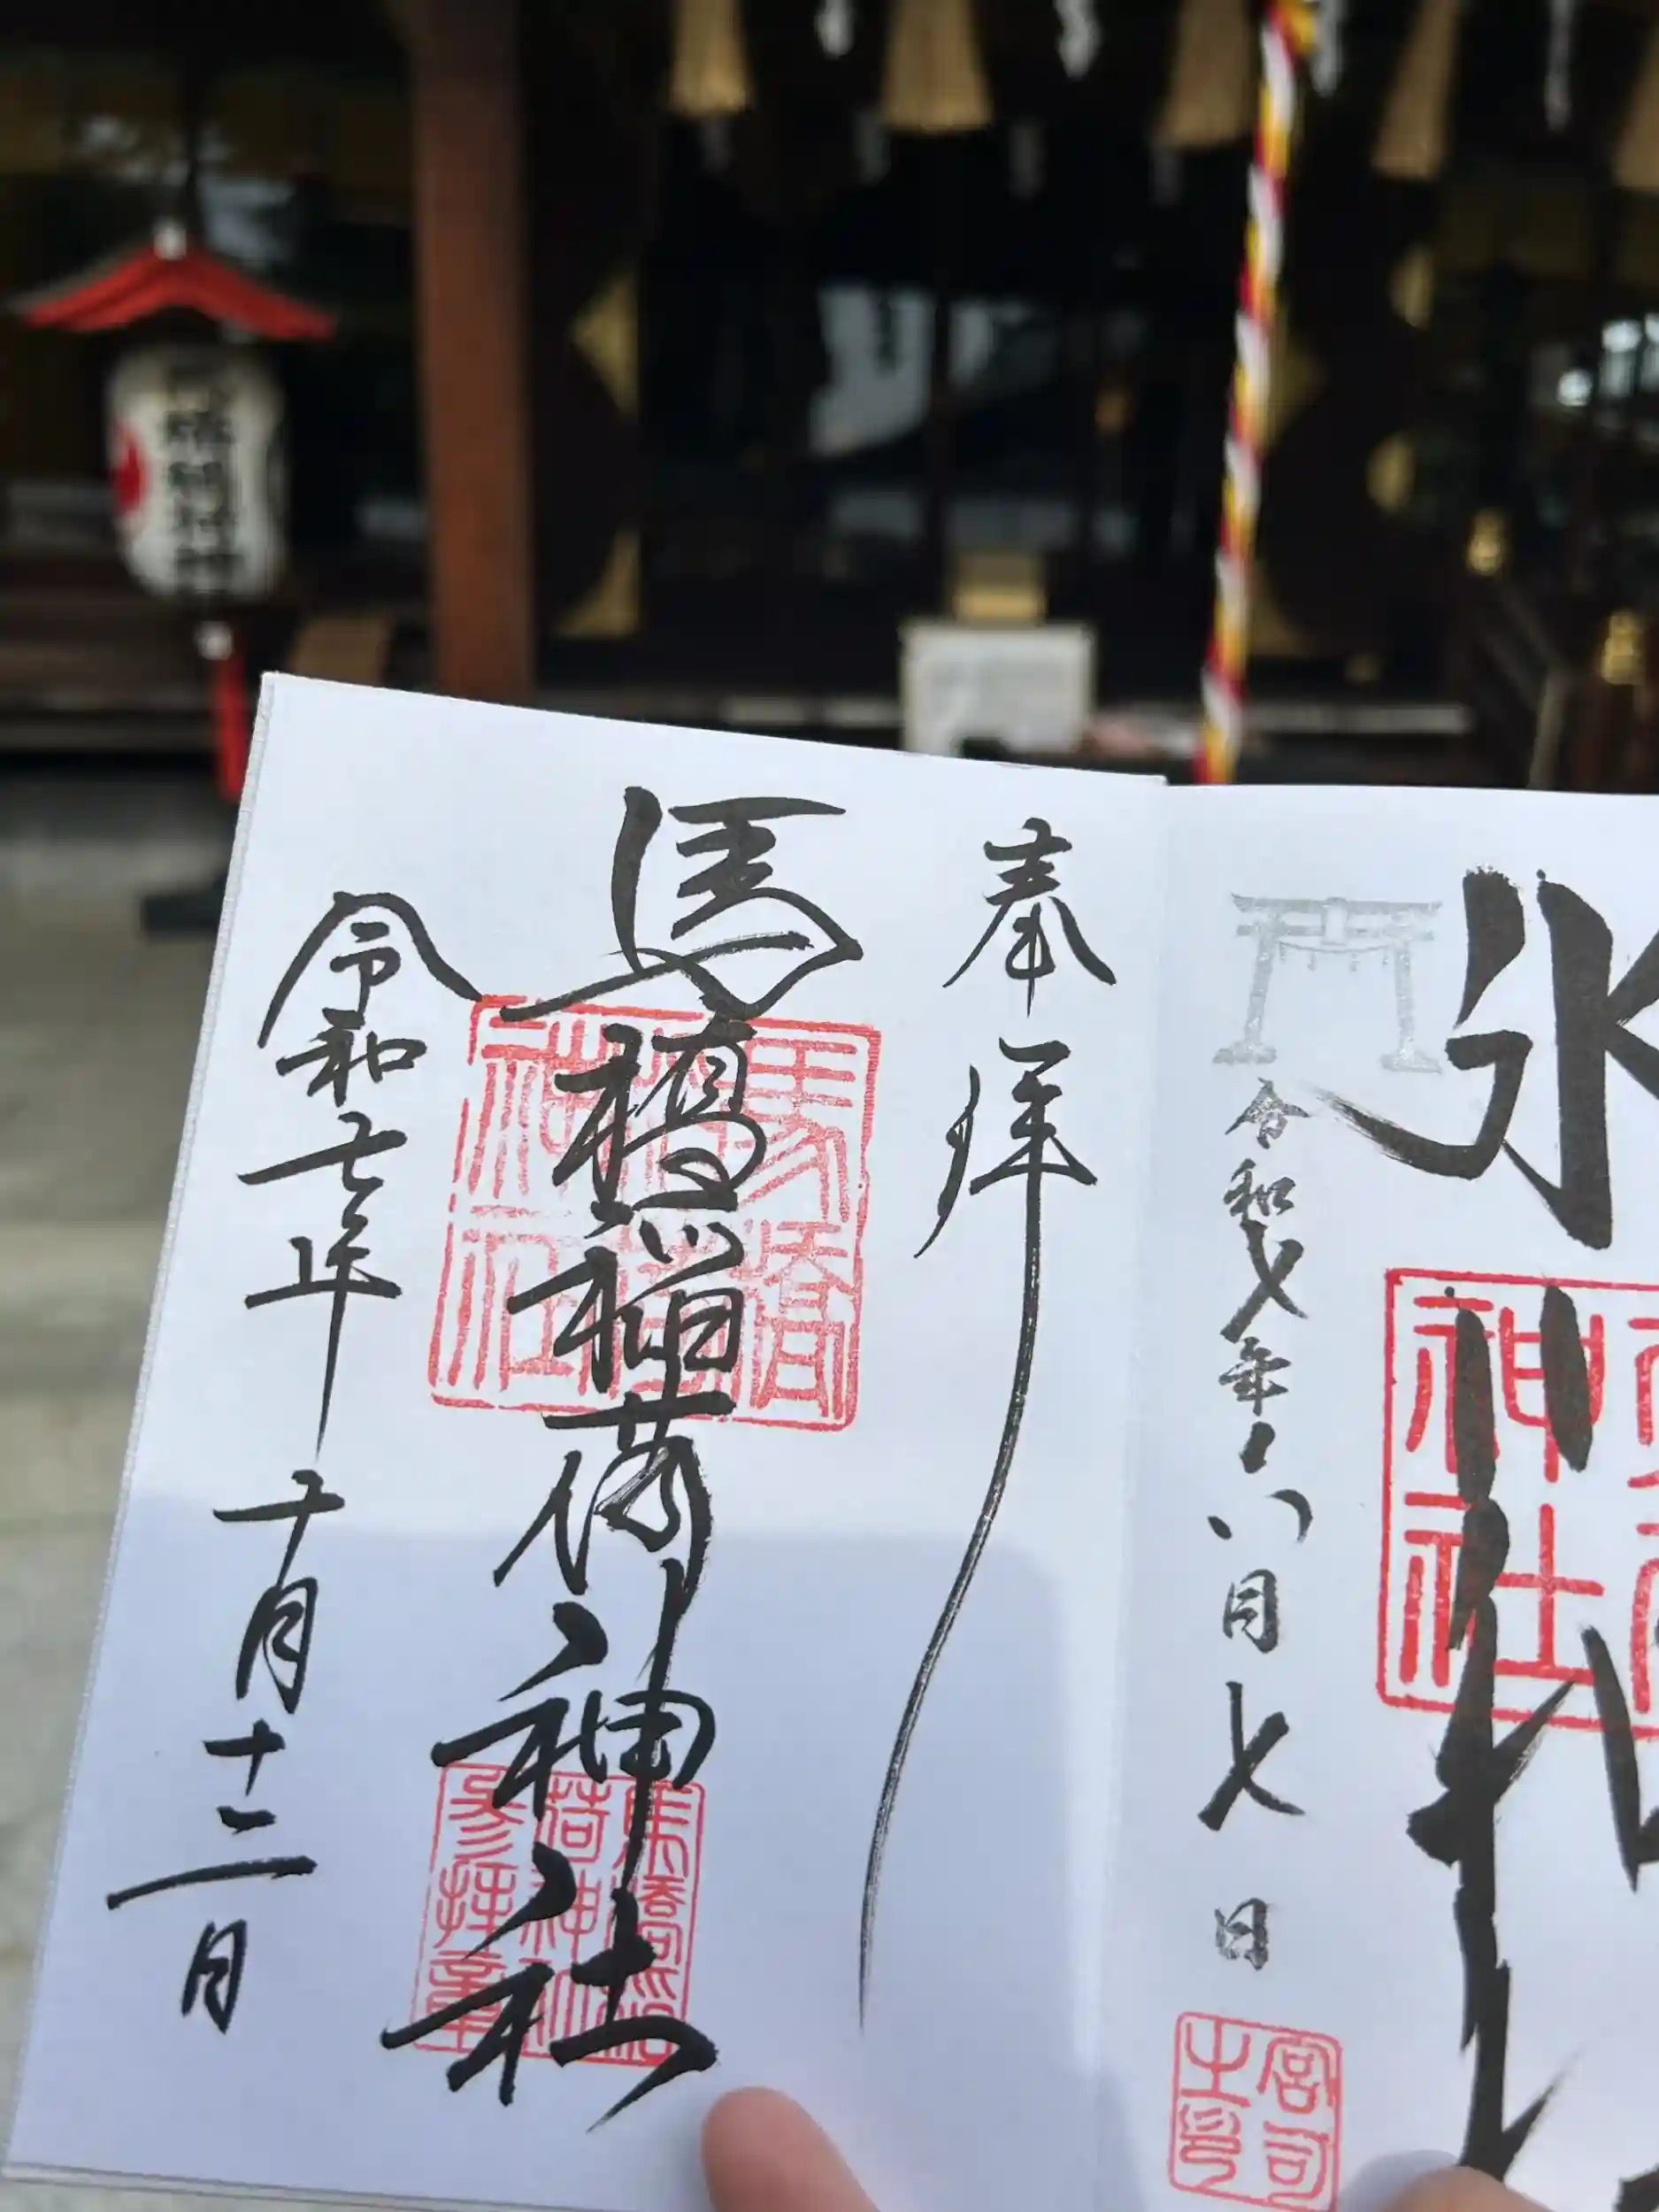 氷
神社
令和七年八月七日
宮司之印
奉拝
馬橋稲荷神社
馬橋稲荷神社
馬橋稲荷神社参拝章
令和七年十月十二日